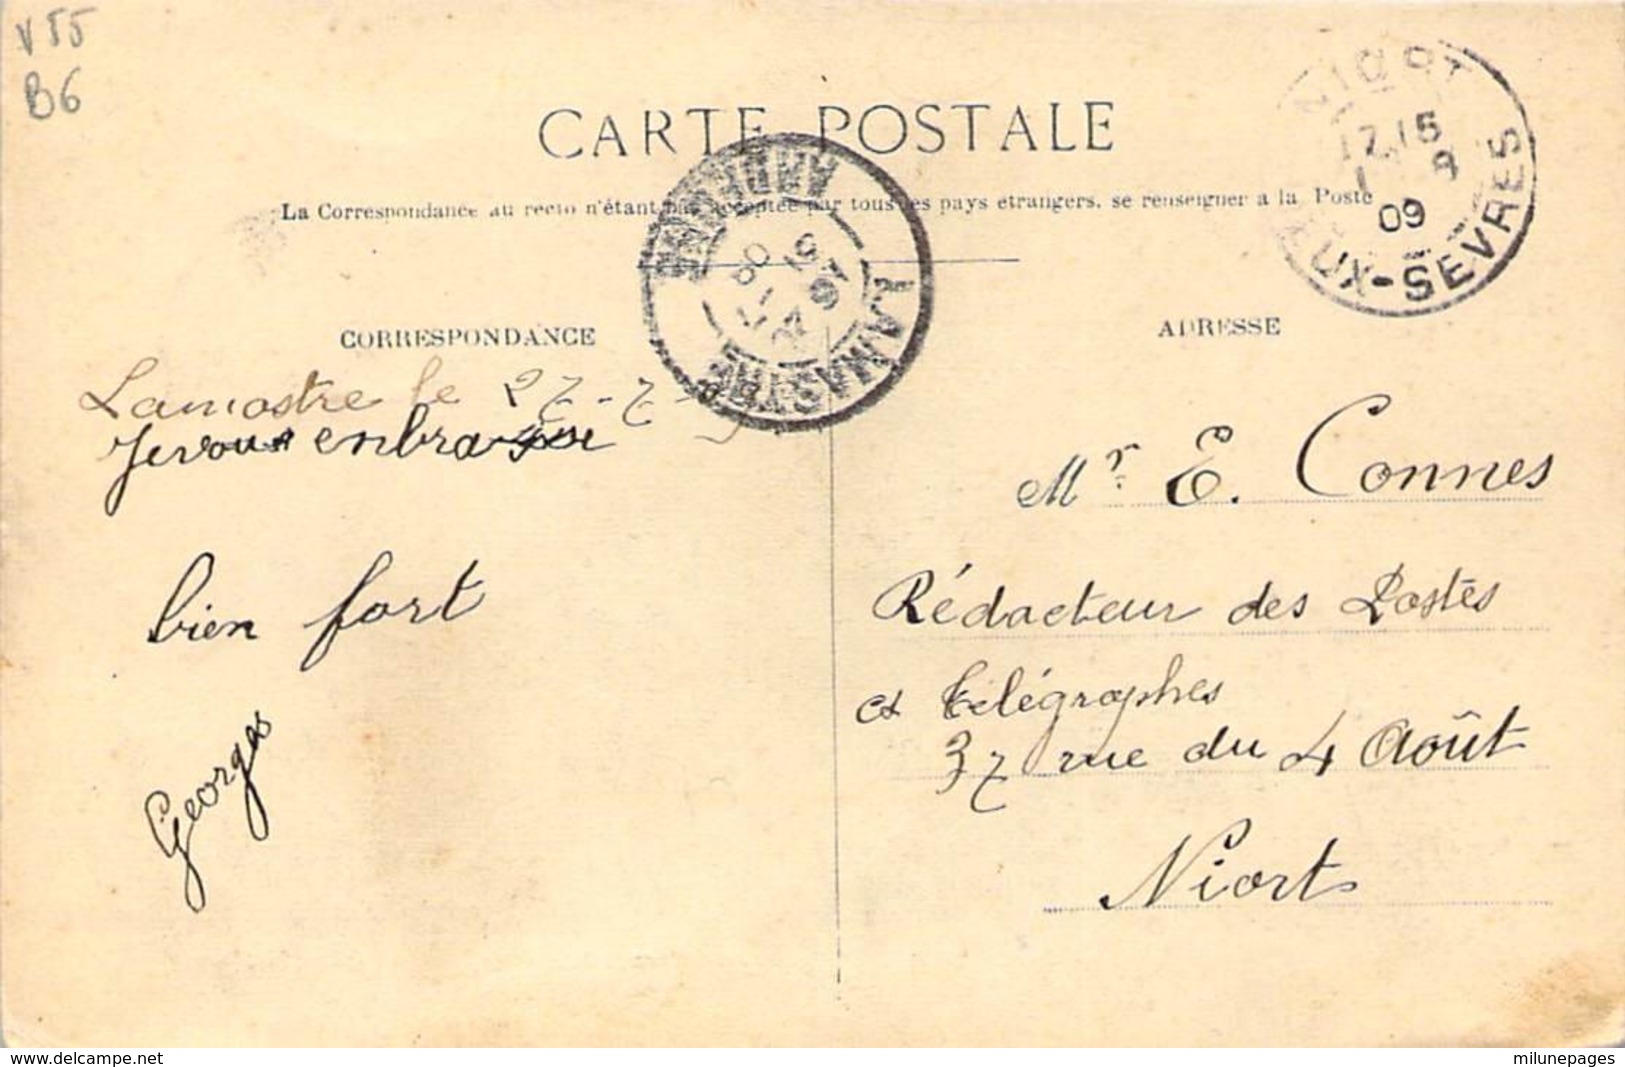 V55
B6
CARTE POSTALE
La Correspondance au recto n'étant pas acceptée par tous les pays étrangers, se renseigner a la Poste
NIORT
17 15
1 9
09
EUX-SEVRES
LAMASTRE
ARDECHE
CORRESPONDANCE
ADRESSE
Lamastre le 27-7-9
Je vous enbrasse
bien fort
Georges
Mr E. Connes
Rédacteur des Postes
et télégraphes
37 rue du 4 Août
Niort
www.delcampe.net
milunepages